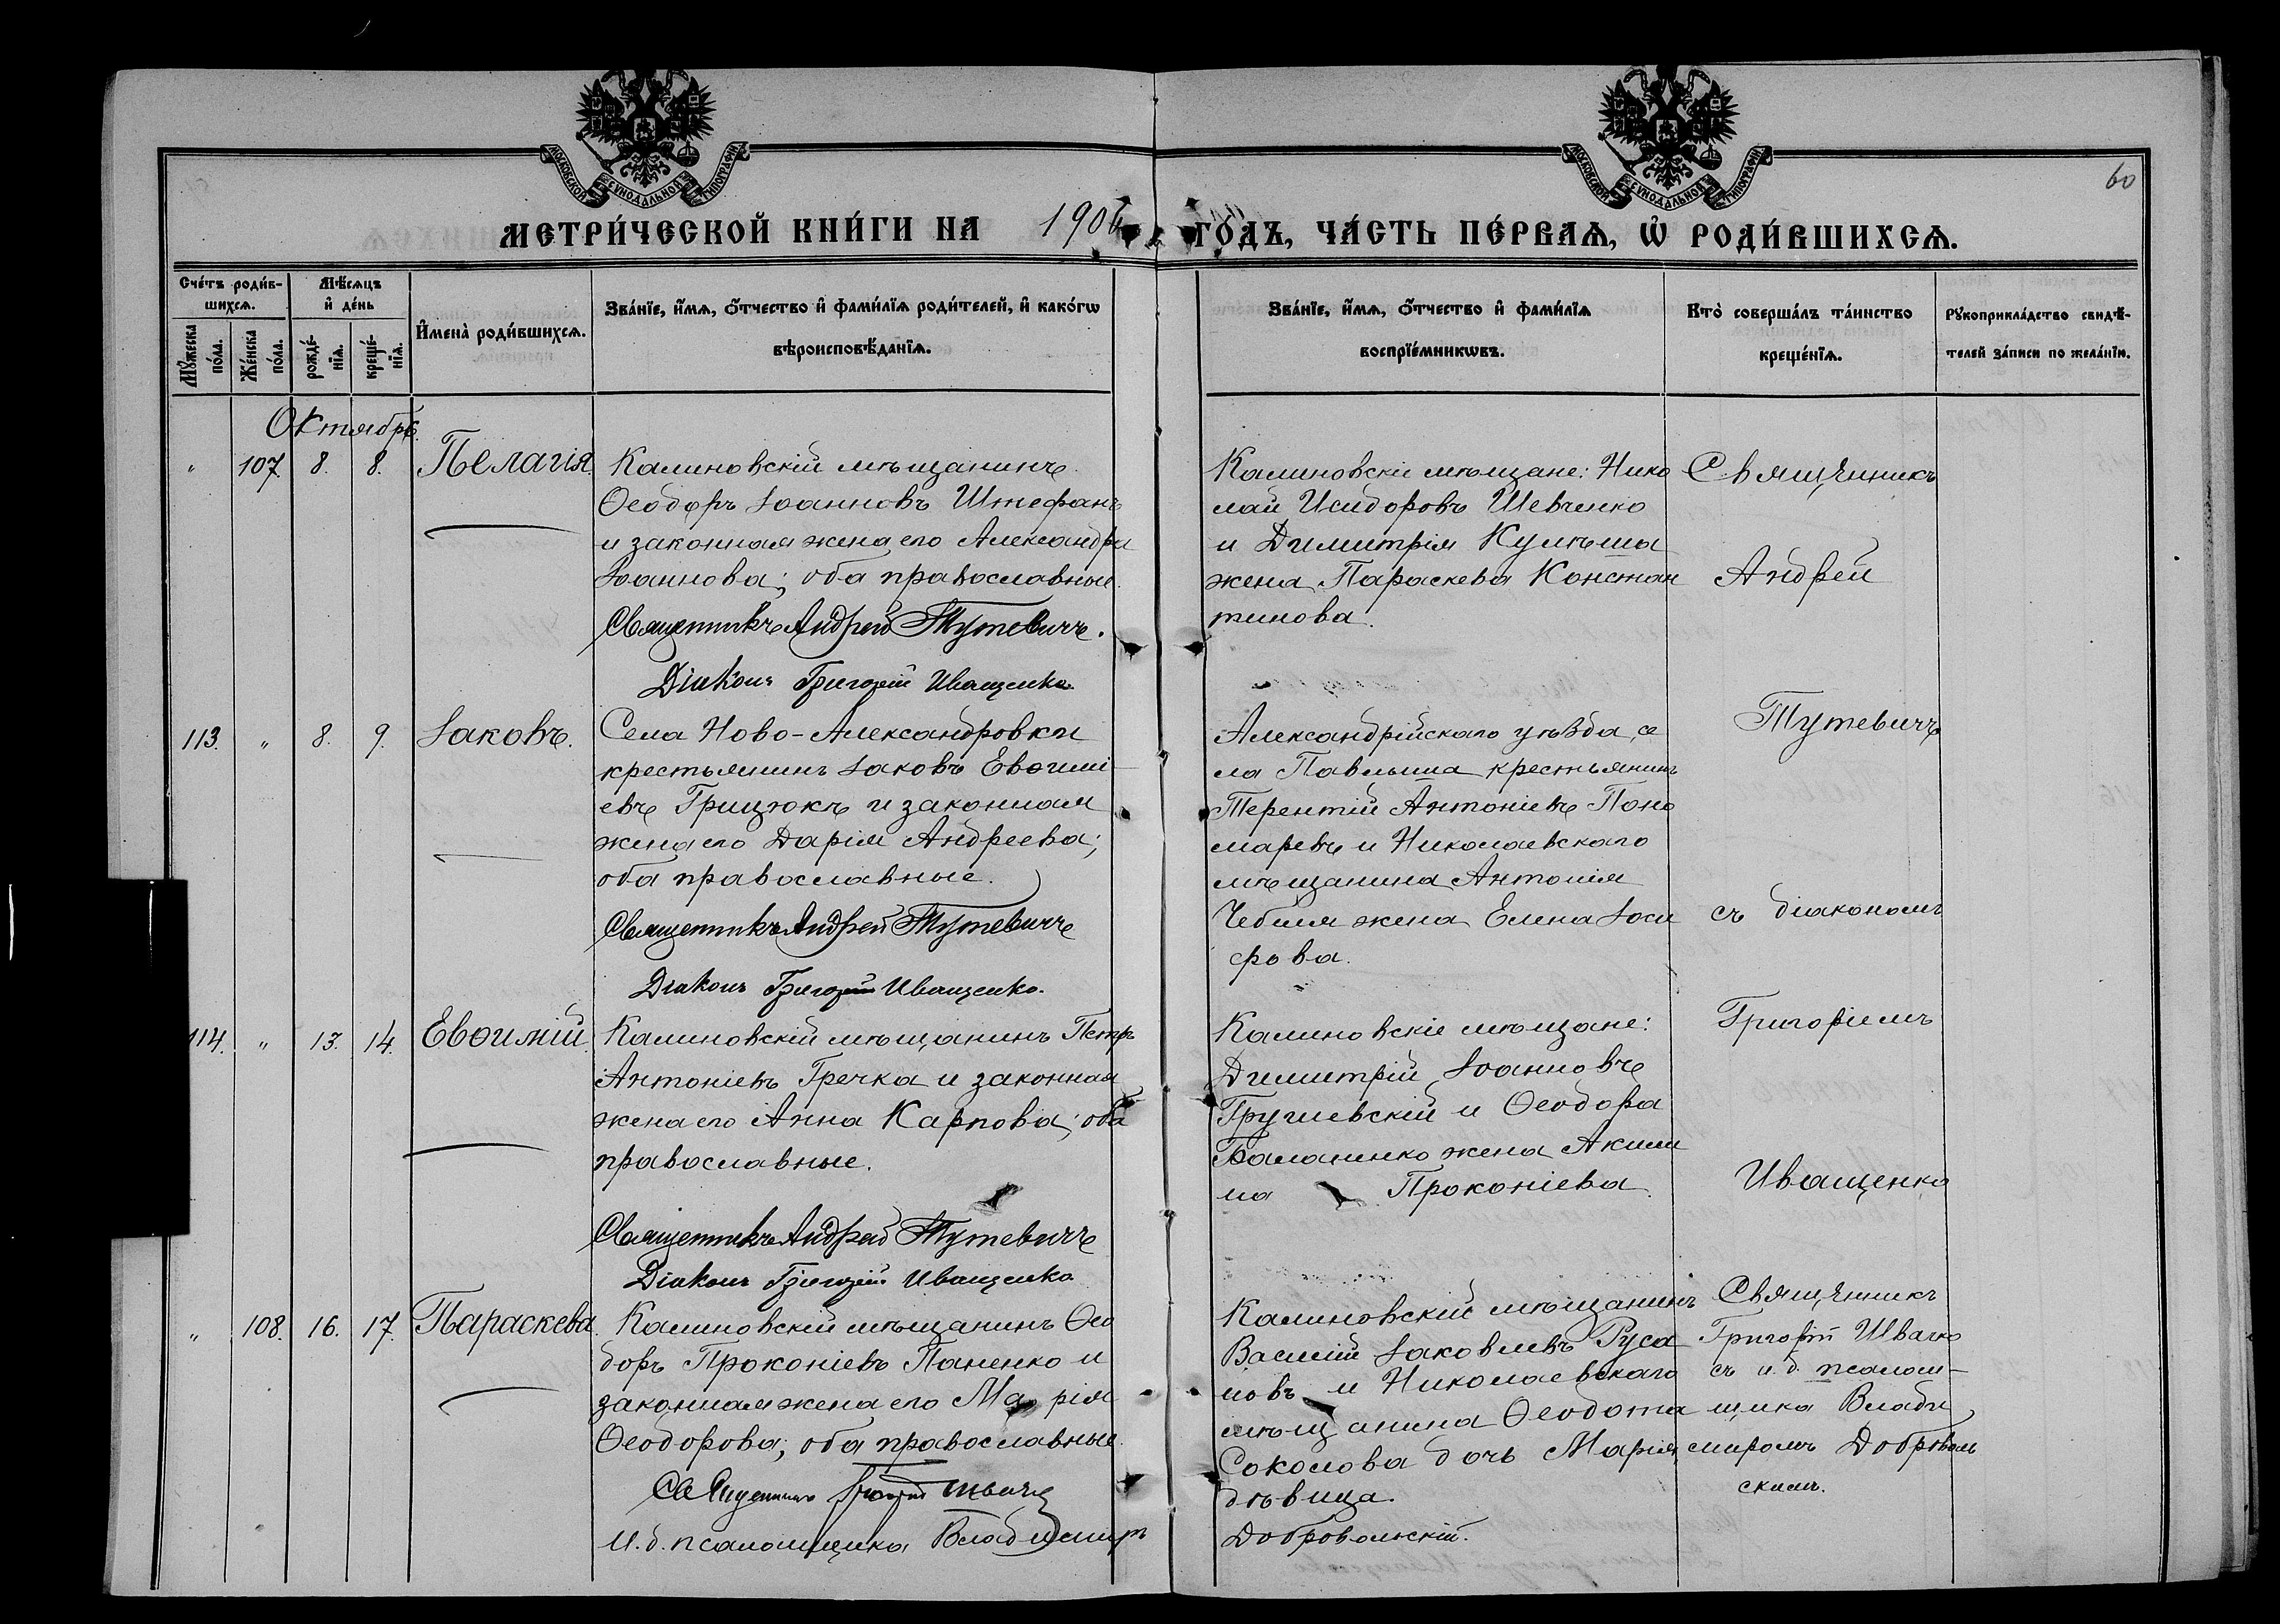 МОСКОВСКОЙ СѴНОДАЛЬНОЙ ТИПОГРАФІИ
МОСКОВСКОЙ СѴНОДАЛЬНОЙ ТИПОГРАФІИ
60
МЕТРИ́ЧЕСКОЙ КНИ́ГИ НА 1906 ГО́ДЪ, ЧА́СТЬ ПЕ́РВАѦ, Ѡ҆ РОДИ́ВШИХСѦ.
Сче́тъ роди́в-
шихсѧ.
Мꙋ́жеска по́ла.
Же́нска по́ла.
Мѣ́сѧцъ
и҆ де́нь
рожде́-
нїѧ.
креще́-
нїѧ.
И҆мена̀ роди́вшихсѧ.
Зва́нїе, и҆́мѧ, ѻ҆́тчество и҆ фами́лїѧ роди́телей, и҆ како́гѡ
вѣроисповѣ́данїѧ.
Зва́нїе, и҆́мѧ, ѻ҆́тчество и҆ фами́лїѧ
воспрїе́мникѡвъ.
Кто̀ соверша́лъ та́инство
креще́нїѧ.
Рꙋкоприкла́дство свидѣ́-
телей за́писи по жела́нїю.
Октябрь.
" 107. 8. 8. Пелагія.
Калиновскій мѣщанинъ
Ѳеодоръ Іоанновъ Штефанъ
и законная жена его Александра
Іоаннова; оба православные.
Священникъ Андрей Тутевичъ.
Діаконъ Григорій Иващенко.
Калиновскіе мѣщане: Нико
лай Исидоровъ Шевченко
и Димитрія Кулѣша
жена Параскева Констан
тинова.
Священникъ
Андрей
Тутевичъ
съ діакономъ
Григоріемъ
Иващенко
113. " 8. 9. Іаковъ.
Села Ново-Александровки
крестьянинъ Іаковъ Евѳимі-
евъ Грицюкъ и законная
жена его Дарія Андреева;
оба православные.
Священникъ Андрей Тутевичъ
Діаконъ Григорій Иващенко.
Александрійскаго уѣзда, се
ла Павлыша крестьянинъ
Терентій Антоніевъ Поно
маревъ и Николаевскаго
мѣщанина Антонія
жена Елена Іоси
фова.
114. " 13. 14. Евѳимій.
Калиновскій мѣщанинъ Петръ
Антоніевъ Гречка и законная
жена его Анна Карпова; оба
православные.
Священникъ Андрей Тутевичъ
Діаконъ Григорій Иващенко
Калиновскіе мѣщане:
Димитрій Іоанновъ
и Ѳеодора
жена Акили
на Прокопіева.
" 108. 16. 17. Параскева.
Калиновскій мѣщанинъ Ѳео
доръ Прокопіевъ Паненко и
законная жена его Марія
Ѳеодорова; оба православные.
Священникъ Григорій
И. д. псаломщика Владимиръ
Калиновскій мѣщанинъ
Василій Іаковлевъ Руса
новъ и Николаевскаго
мѣщанина Ѳеодота
Соколова дочь Марія,
дѣвица.
Добровольскій.
Священникъ
Григорій Швачко
съ и. д. псалом-
щика Влади
миромъ Доброволь
скимъ.